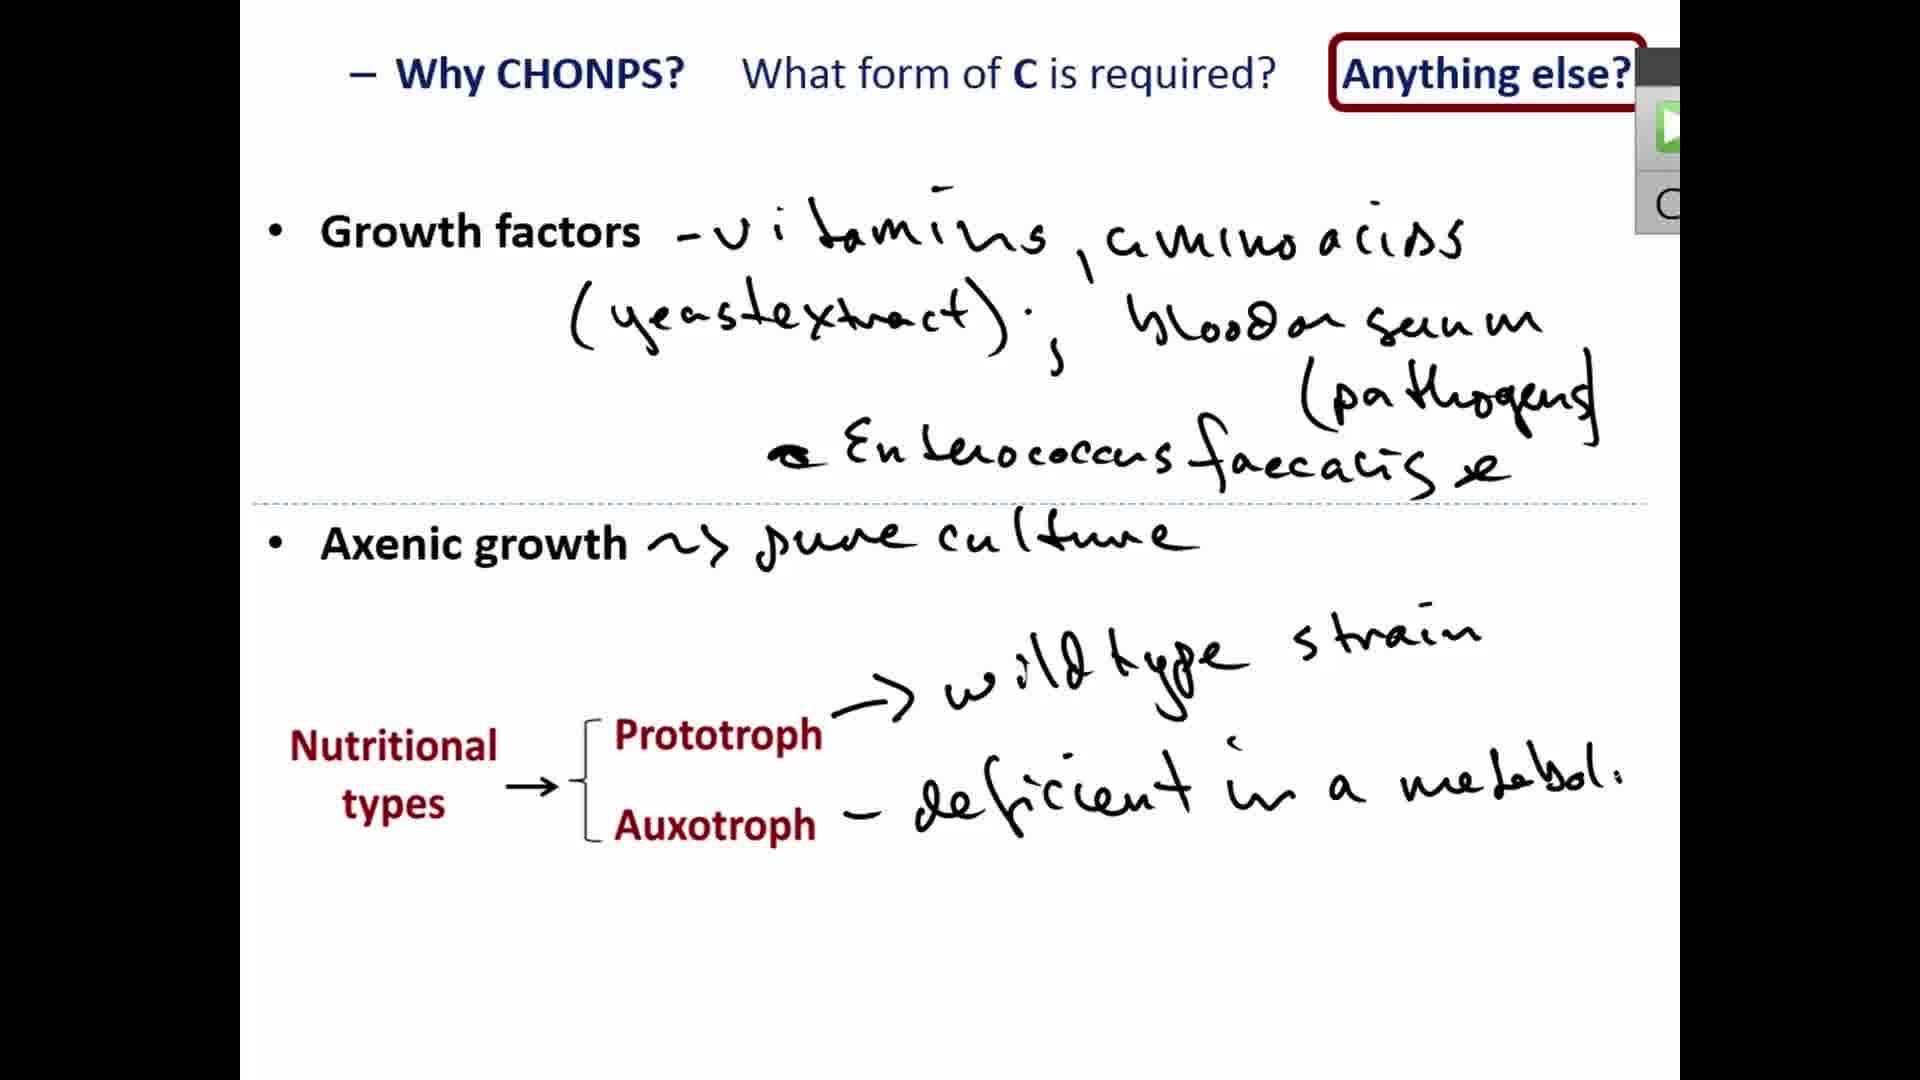 – Why CHONPS? What form of C is required? Anything else?
• Growth factors - vitamins, amino acids
(yeast extract); blood or serum
(pathogens)
- Enterococcus faecalis
• Axenic growth ~> pure culture
→ wild type strain
Nutritional types → Prototroph
Auxotroph - deficient in a metabol.